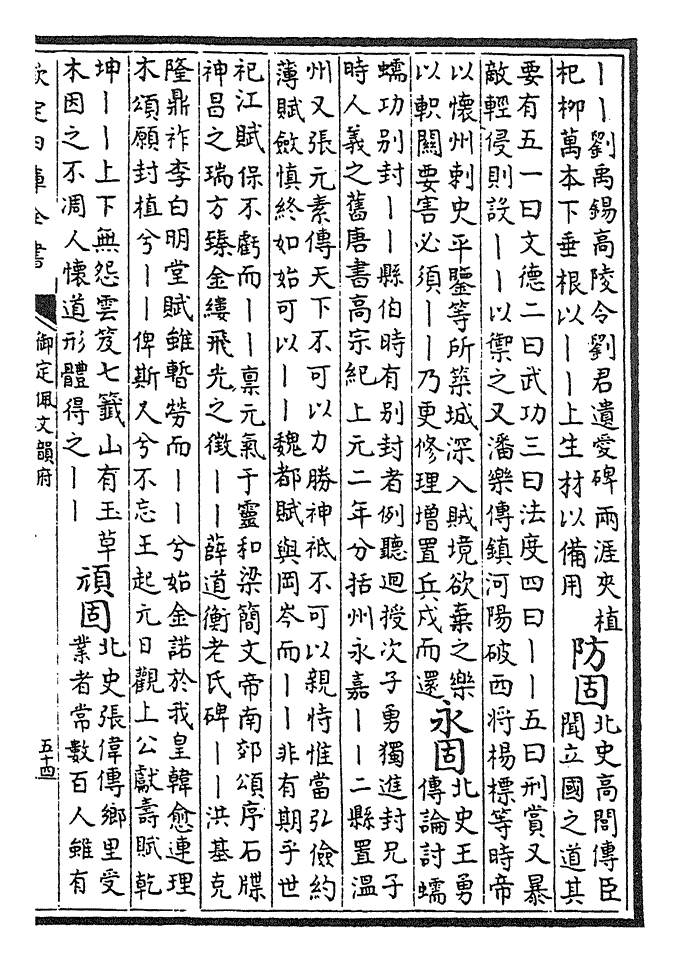 丨丨劉禹錫高陵令劉君遺愛碑兩涯夾植
杞栁萬本下垂根以丨丨上生材以備用
防固
北史高閭傳臣
聞立國之道其
要有五一曰文德二曰武功三曰法度四曰丨丨五曰刑賞又暴
敵輕侵則設丨丨以禦之又潘樂傳鎮河陽破西将楊標等時帝
以懷州刺史平鑒等所築城深入賊境欲棄之樂
以軹關要害必須丨丨乃更修理增置兵戍而還
永固
北史王勇
傳論討蠕
蠕功别封丨丨縣伯時有别封者例聽迴授次子勇獨進封兄子
時人義之舊唐書高宗紀上元二年分括州永嘉丨丨二縣置溫
州又張元素傳天下不可以力勝神祇不可以親恃惟當弘儉約
薄賦斂慎終如始可以丨丨魏都賦與岡岑而丨丨非有期乎世
祀江賦保不虧而丨丨禀元氣于靈和梁簡文帝南郊頌序石牒
神昌之瑞方臻金縷飛光之徵丨丨薛道衡老氏碑丨丨洪基克
隆鼎祚李白明堂賦雖暫勞而丨丨兮始金諾於我皇韓愈連理
木頌願封植兮丨丨俾斯人兮不忘王起元日觀上公獻壽賦乾
坤丨丨上下無怨雲笈七籤山有玉草
木因之不凋人懷道形體得之丨丨
頑固
北史張偉傳鄉里受
業者常數百人雖有
欽定四庫全書
御定佩文韻府
五十四